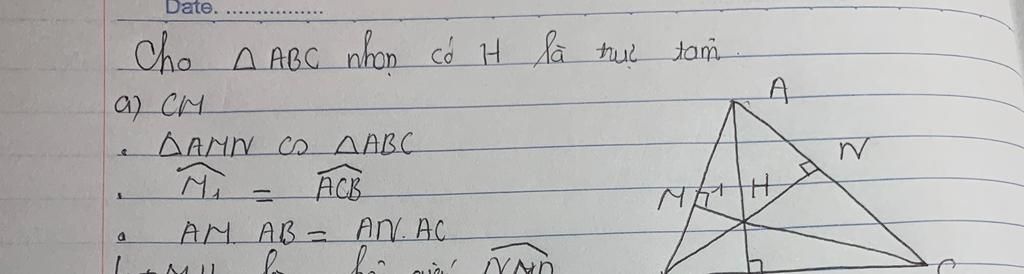 Date. ................
Cho △ABC nhọn có H là trực tâm
a) CM
. △AMN ∽ △ABC
. M₁ = ACB
. AM. AB = AN. AC
A
N
M 1 H